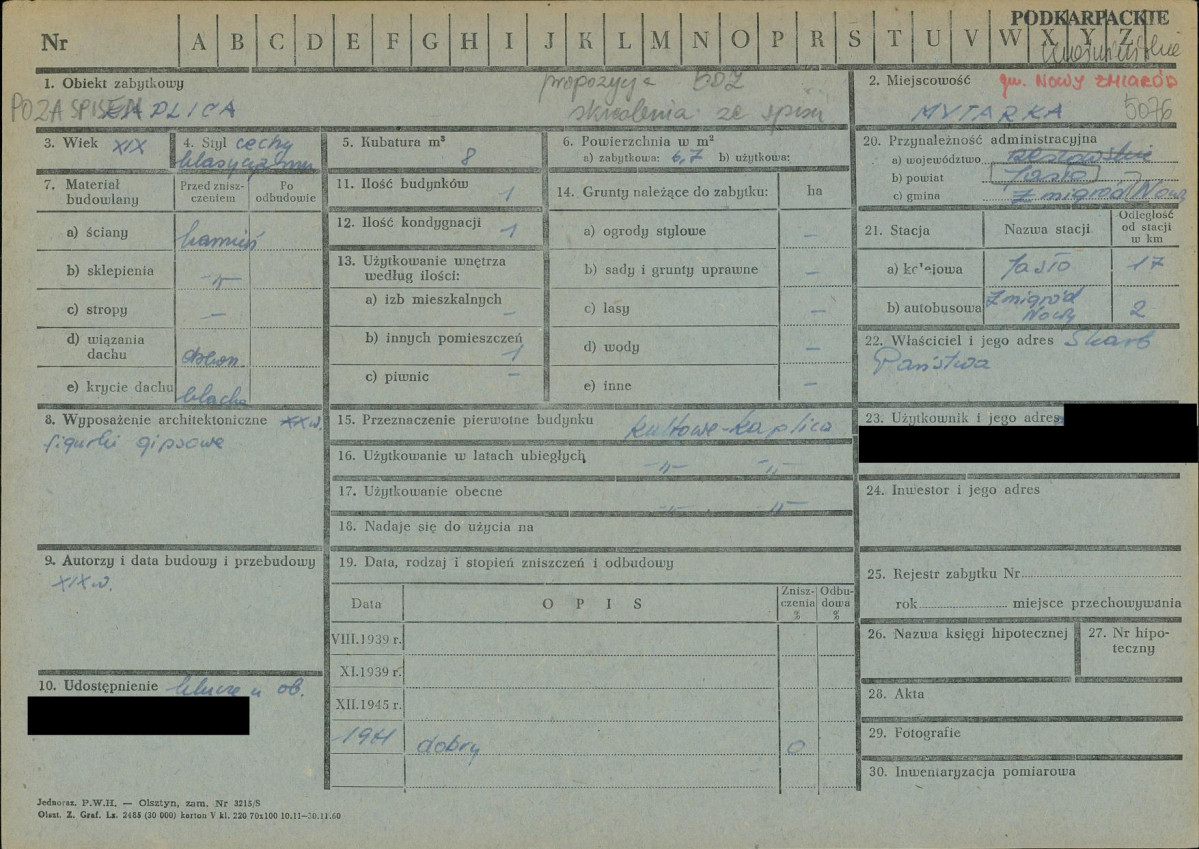 PODKARPACKIE
Nr A B C D E F G H I J K L M N O P R S T U V W X Y Z
1. Obiekt zabytkowy
POZA SPISEM
KAPLICA
propozycja
skreślenia ze spisu
2. Miejscowość gm. NOWY ŻMIGRÓD
MYTARKA 5076
3. Wiek XIX
4. Styl cechy
klasycyzmu
5. Kubatura m³
8
6. Powierzchnia w m²
a) zabytkowa: 6,7 b) użytkowa:
7. Materiał budowlany
Przed zniszczeniem
Po odbudowie
a) ściany kamień
b) sklepienia -"-
c) stropy —
d) wiązania dachu drewn.
e) krycie dachu blacha
8. Wyposażenie architektoniczne XX w.
figurki gipsowe
9. Autorzy i data budowy i przebudowy
XIX w.
10. Udostępnienie klucze u ob.
11. Ilość budynków 1
12. Ilość kondygnacji 1
13. Użytkowanie wnętrza według ilości:
a) izb mieszkalnych —
b) innych pomieszczeń 1
c) piwnic —
14. Grunty należące do zabytku: ha
a) ogrody stylowe —
b) sady i grunty uprawne —
c) lasy —
d) wody —
e) inne —
15. Przeznaczenie pierwotne budynku kultowe-kaplica
16. Użytkowanie w latach ubiegłych -"- -"-
17. Użytkowanie obecne -"- -"-
18. Nadaje się do użycia na
19. Data, rodzaj i stopień zniszczeń i odbudowy
Data OPIS Zniszczenia % Odbudowa %
VIII.1939 r.
XI.1939 r.
XII.1945 r.
dobry 0
20. Przynależność administracyjna
a) województwo rzeszowskie
b) powiat Jasło
c) gmina Żmigród Nowy
21. Stacja Nazwa stacji Odległość od stacji w km
a) kolejowa Jasło 17
b) autobusowa Żmigród Nowy 2
22. Właściciel i jego adres Skarb
Państwa
23. Użytkownik i jego adres
24. Inwestor i jego adres
25. Rejestr zabytku Nr
rok miejsce przechowywania
26. Nazwa księgi hipotecznej
27. Nr hipoteczny
28. Akta
29. Fotografie
30. Inwentaryzacja pomiarowa
Jednoraz. P.W.H. — Olsztyn, zam. Nr 3215/S
Olszt. Z. Graf. Lz. 2485 (30 000) karton V kl. 220 70x100 10.11—30.11.60